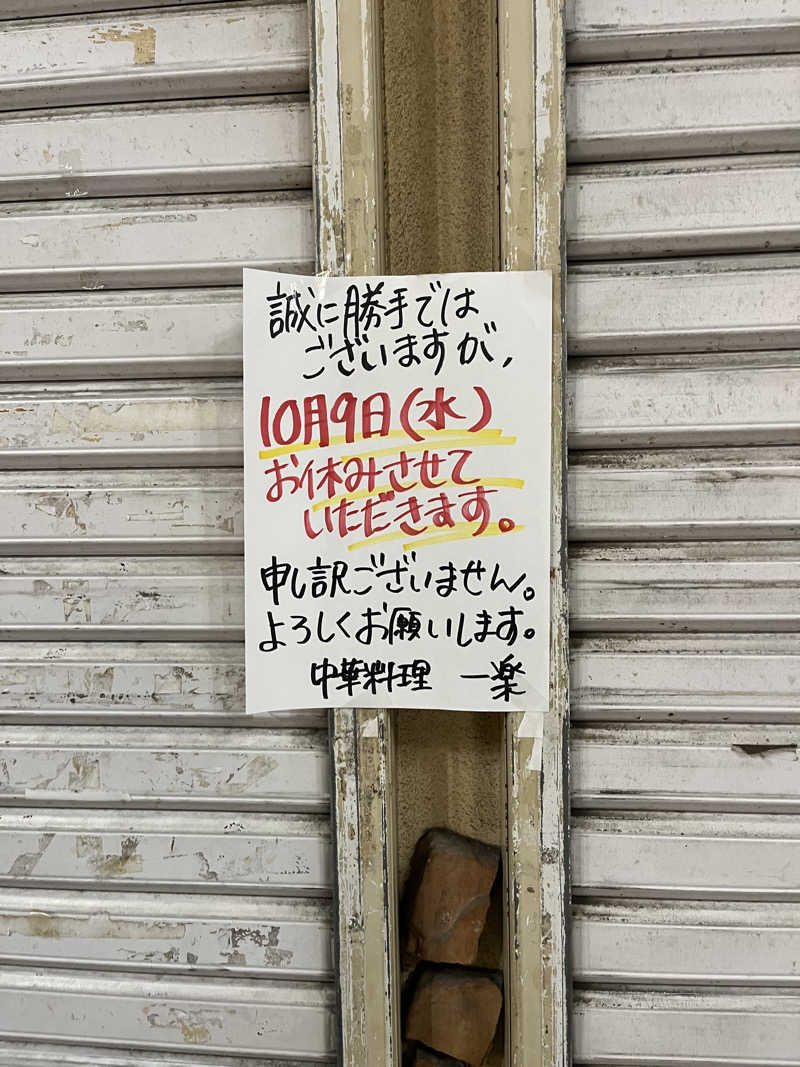 誠に勝手では
ございますが,
10月9日(水)
お休みさせて
いただきます。
申し訳ございません。
よろしくお願いします。
中華料理 一楽